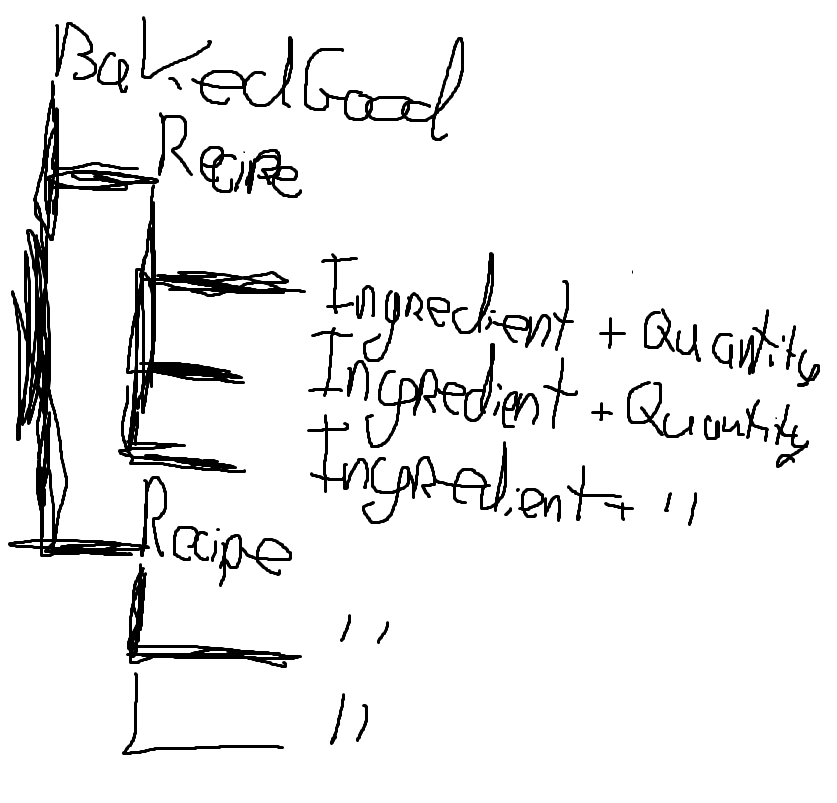 BakedGood
Recipe
Ingredient + Quantity
Ingredient + Quantity
Ingredient + ''
Recipe
''
''